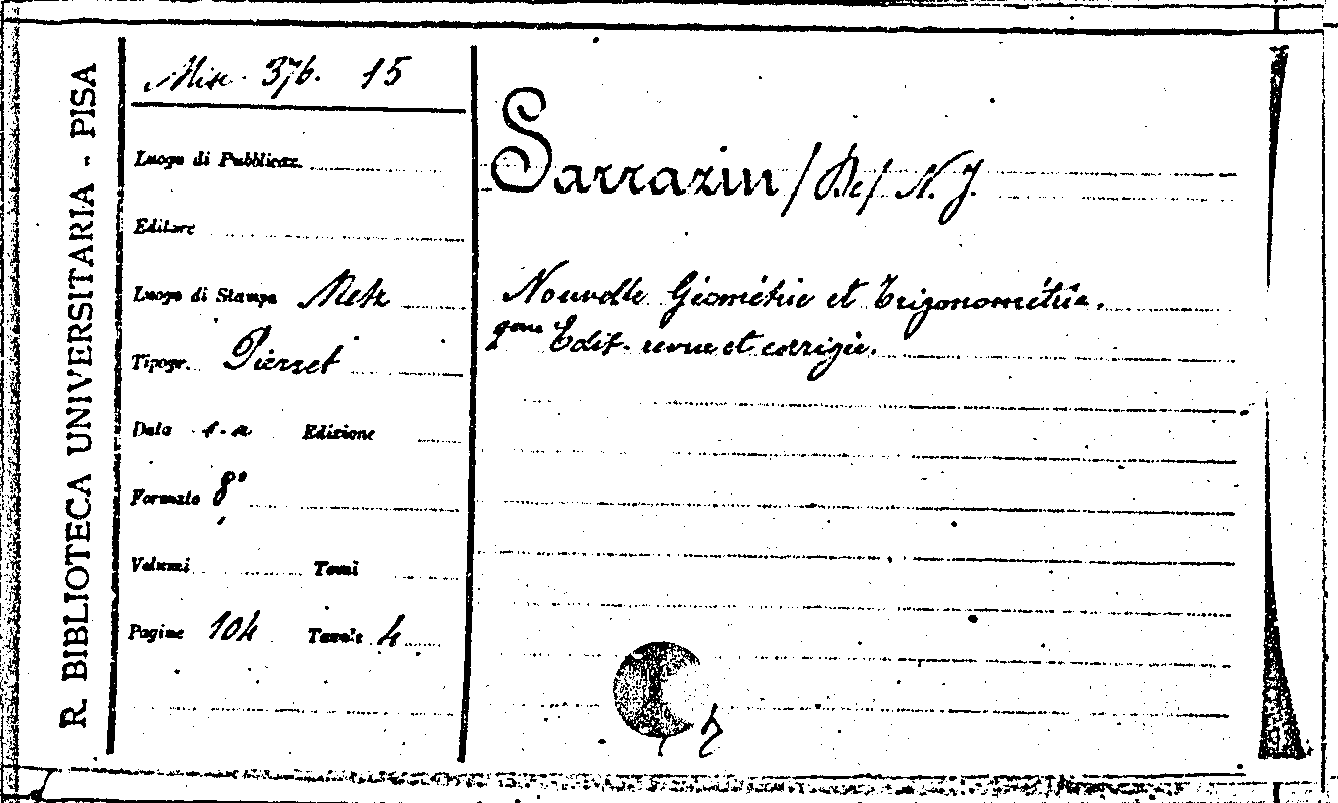 R. BIBLIOTECA UNIVERSITARIA - PISA
Misc. 376. 15
Luogo di Pubblicaz.
Editore
Luogo di Stampa Metz
Tipogr. Pierret
Data s.a Edizione
Formato 8°
Volumi Tomi
Pagine 104 Tavole 4
Sarrazin / De / N. J.
Nouvelle Géométrie et Trigonométrie.
Edit. revue et corrigée.